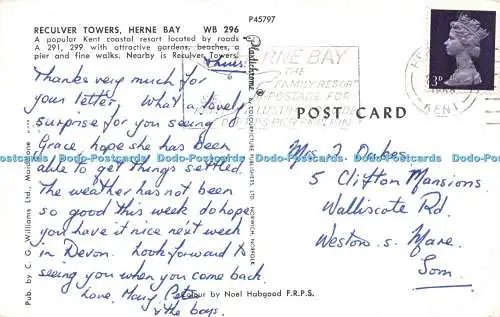 RECULVER TOWERS, HERNE BAY WB 296
A popular Kent coastal resort located by roads
A 291, 299 with attractive gardens, beaches, a
pier and fine walks. Nearby is Reculver Towers.
Thurs.
Thanks very much for
your letter, What a lovely
surprise for you seeing
Grace, hope she has been
able to get things settled.
The weather has not been
so good this week do hope
you have it nice next week
in Devon. Look forward to
seeing you when you come back.
Love, Mary, Pete
& the boys.
Pub. by C. G. Williams Ltd., Maidstone
P45797
Plastichrome
by COLOURPICTURE PUBLISHERS, LTD. NORWICH, NORFOLK
Colour by Noel Habgood F.R.P.S.
HERNE BAY
THE
FAMILY RESORT
POSTAGE FOR
ILLUSTRATED GUIDE
POST CARD
3D
KENT
Mrs. J. Dukes
5 Clifton Mansions
Walliscote Rd.
Weston s. Mare.
Som.
Dodo-Postcards Dodo-Postcards Dodo-Postcards Dodo-Postcards Dodo-Postcards